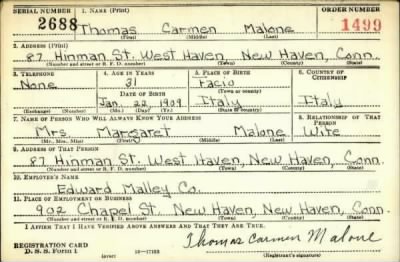 SERIAL NUMBER 1. NAME (Print) ORDER NUMBER
2688 Thomas Carmen Malone 1499
(First) (Middle) (Last)
2. ADDRESS (Print)
87 Hinman St. West Haven, New Haven, Conn.
(Number and street or R. F. D. number) (Town) (County) (State)
3. TELEPHONE 4. AGE IN YEARS 5. PLACE OF BIRTH 6. COUNTRY OF CITIZENSHIP
None 31 Facio
DATE OF BIRTH (Town or county)
Jan. 22 1909 Italy Italy
(Exchange) (Number) (Mo.) (Day) (Yr.) (State or country)
7. NAME OF PERSON WHO WILL ALWAYS KNOW YOUR ADDRESS 8. RELATIONSHIP OF THAT PERSON
Mrs. Margaret Malone Wife
(Mr., Mrs., Miss) (First) (Middle) (Last)
9. ADDRESS OF THAT PERSON
87 Hinman St. West Haven, New Haven, Conn.
(Number and street or R. F. D. number) (Town) (County) (State)
10. EMPLOYER'S NAME
Edward Malley Co.
11. PLACE OF EMPLOYMENT OR BUSINESS
902 Chapel St. New Haven, New Haven, Conn.
(Number and street or R. F. D. number) (Town) (County) (State)
I AFFIRM THAT I HAVE VERIFIED ABOVE ANSWERS AND THAT THEY ARE TRUE.
REGISTRATION CARD Thomas Carmen Malone
D. S. S. Form 1 (over) (Registrant's signature)